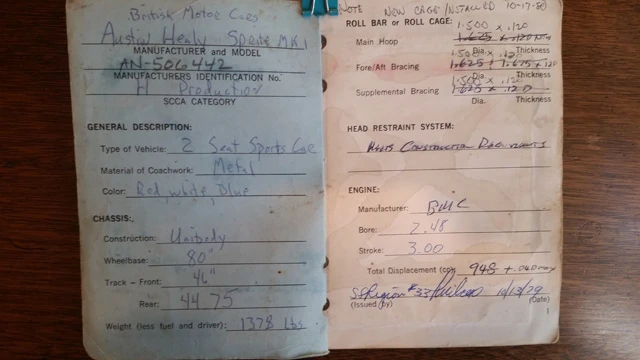 British Motor Cars
Austin Healy Sprite MK1
MANUFACTURER AND MODEL
AN-506442
MANUFACTURERS IDENTIFICATION No.
H Production
SCCA CATEGORY
GENERAL DESCRIPTION:
Type of Vehicle: 2 Seat Sports Car
Material of Coachwork: Metal
Color: Red, white, Blue
CHASSIS:
Construction: Unibody
Wheelbase: 80"
Track - Front: 46"
Rear: 44.75
Weight (less fuel and driver): 1378 Lbs
NOTE NEW CAGE INSTALLED 10-17-80
ROLL BAR or ROLL CAGE:
1.500 x .120
Main Hoop 1.625 x .120
Dia. Thickness
1.50 x .120
Fore/Aft Bracing 1.625 x .120
Dia. Thickness
1.50 x .120
Supplemental Bracing 1.625 x .120
Dia. Thickness
HEAD RESTRAINT SYSTEM:
Meets Construction Requirements
ENGINE:
Manufacturer: BMC
Bore: 2.48
Stroke: 3.00
Total Displacement (cc): 948 + .040
SS Region #33 10/13/79
(Issued by) (Date)
1